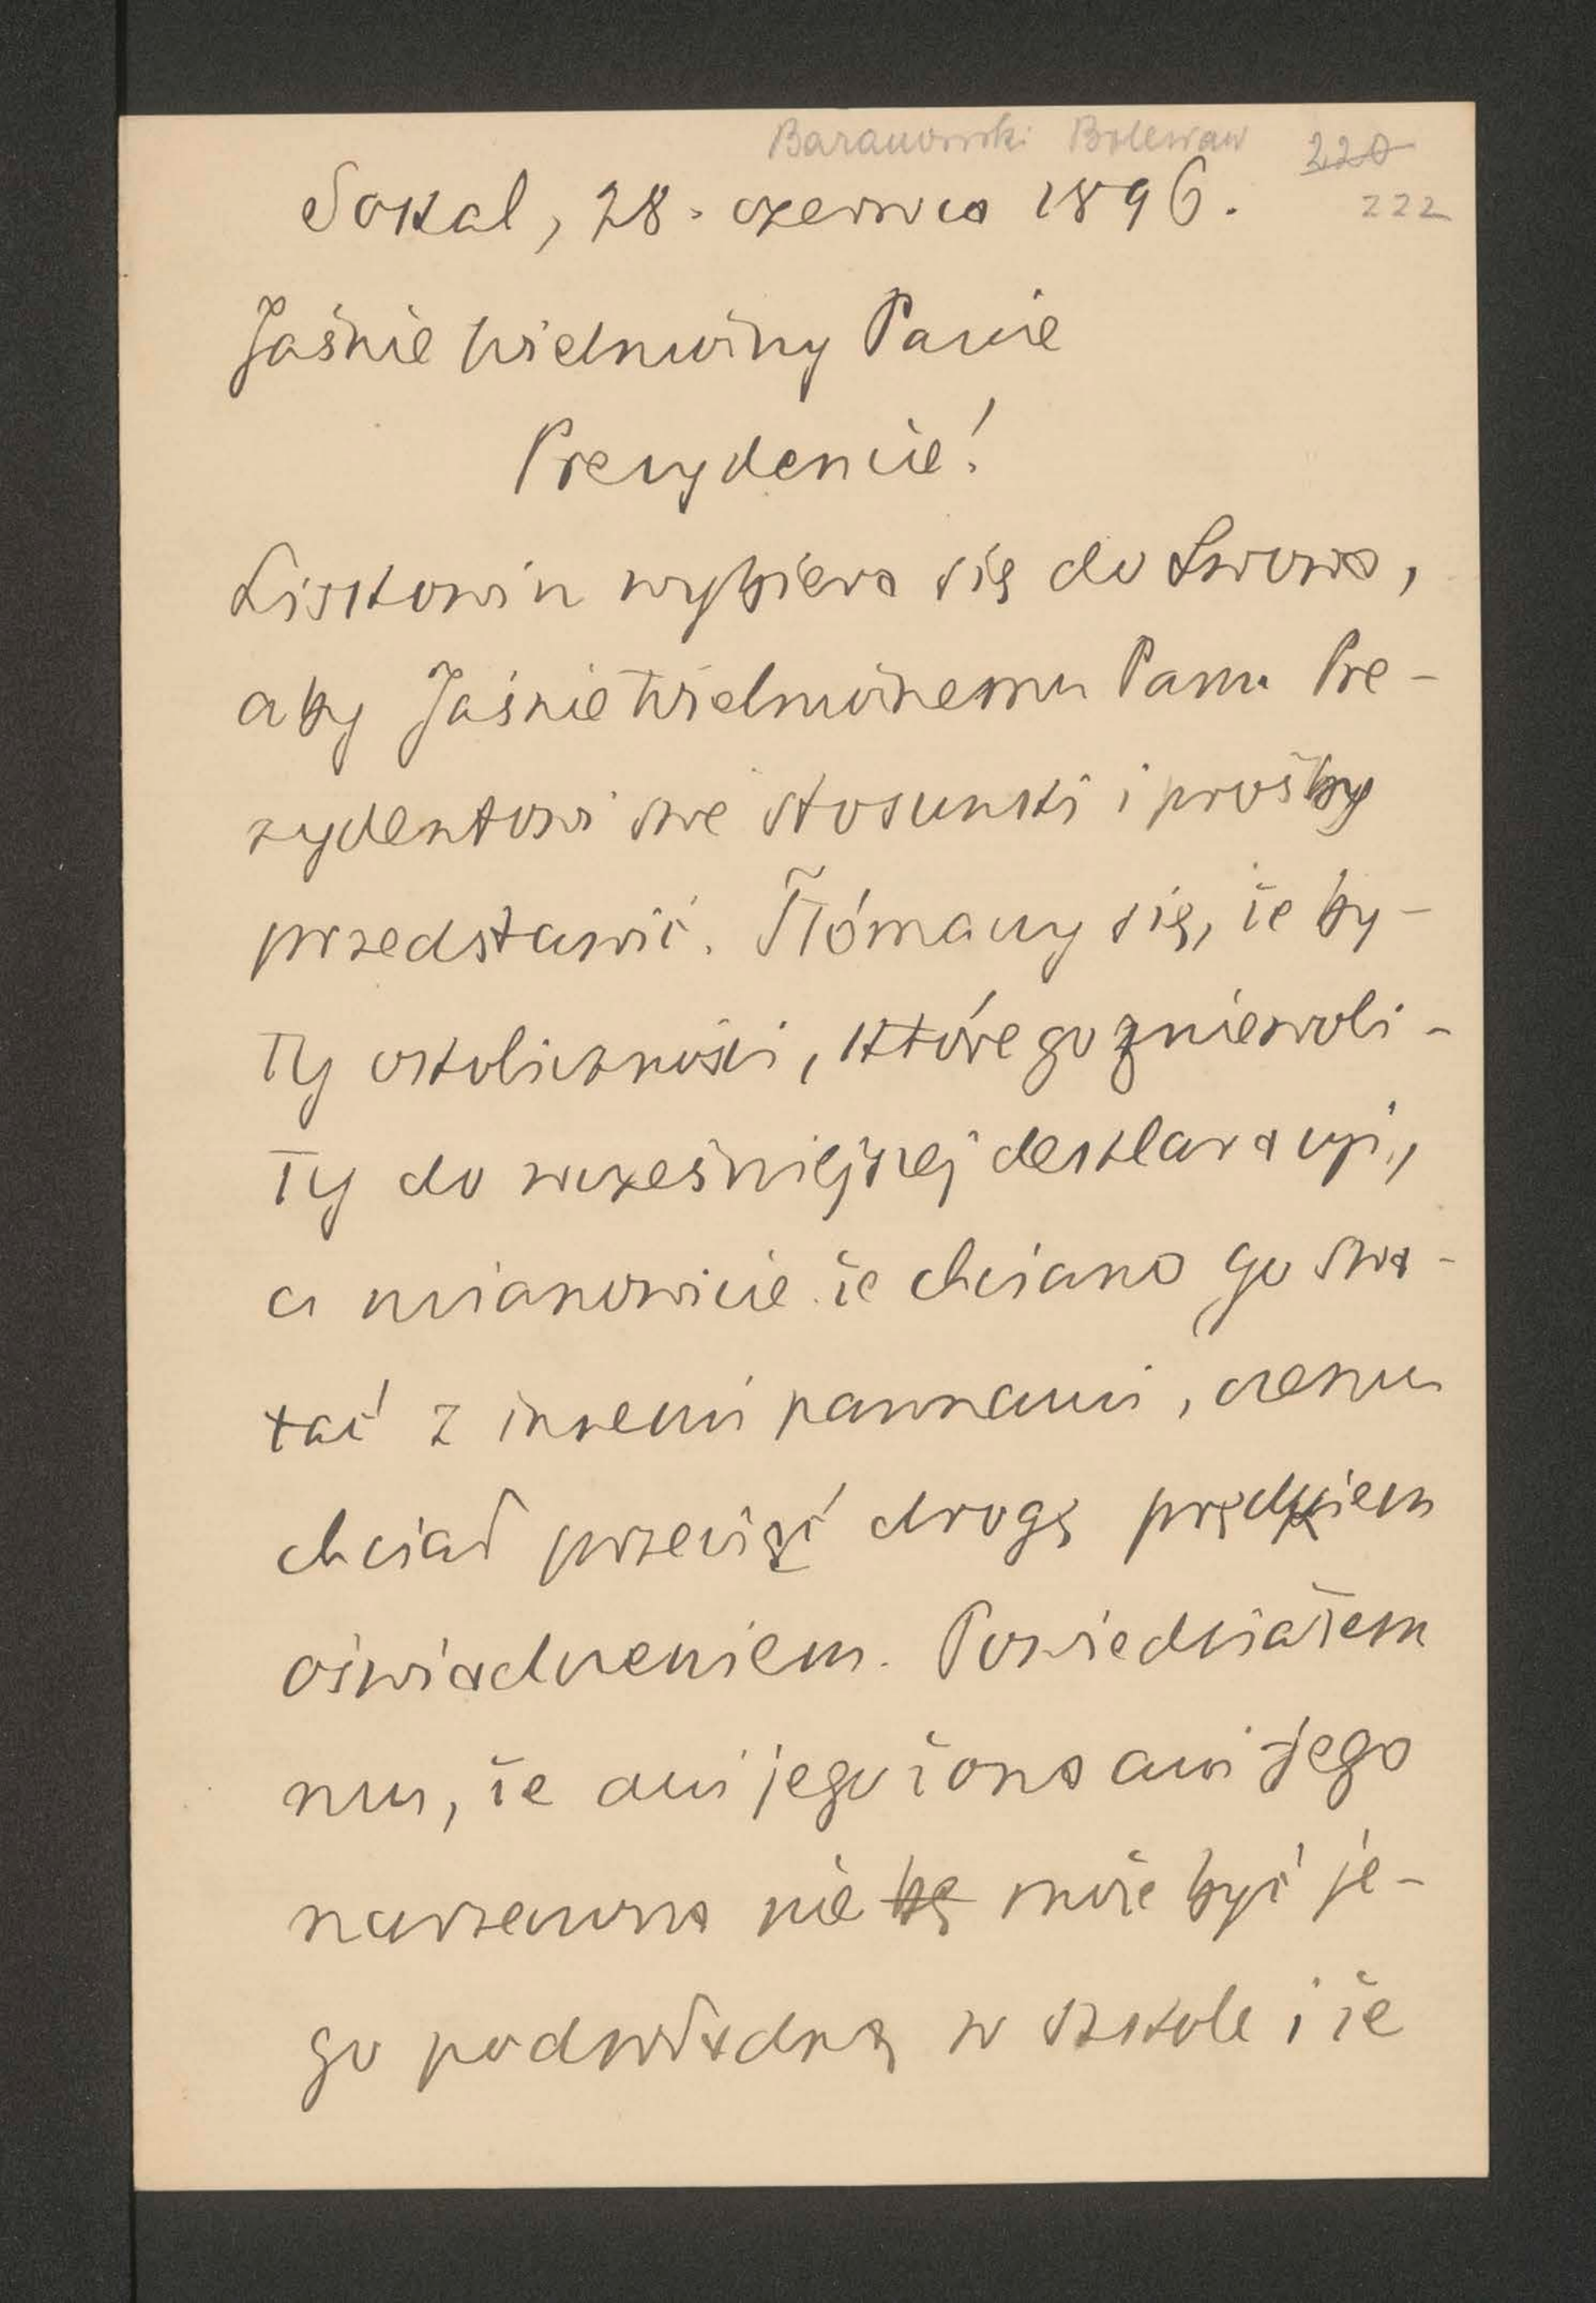 Baranowski Bolesław 220
222
Sokal, 28. czerwca 1896.
Jaśnie Wielmożny Panie
Prezydencie!
Lisikowin wybiera się do Lwowa,
aby Jaśnie Wielmożnemu Panu Pre-
zydentowi swe stosunki i prośby
przedstawić. Tłómaczy się, że by-
ły okoliczności, które go zniewoli-
ły do wcześniejszej deklaracyi,
a mianowicie że chciano go swa-
tać z innemi pannami, czemu
chciał przeciąć drogę prędkiem
oświadczeniem. Powiedziałem
mu, że ani jego żona ani jego
narzeczona nie bę może być je-
go podwładną w szkole i że